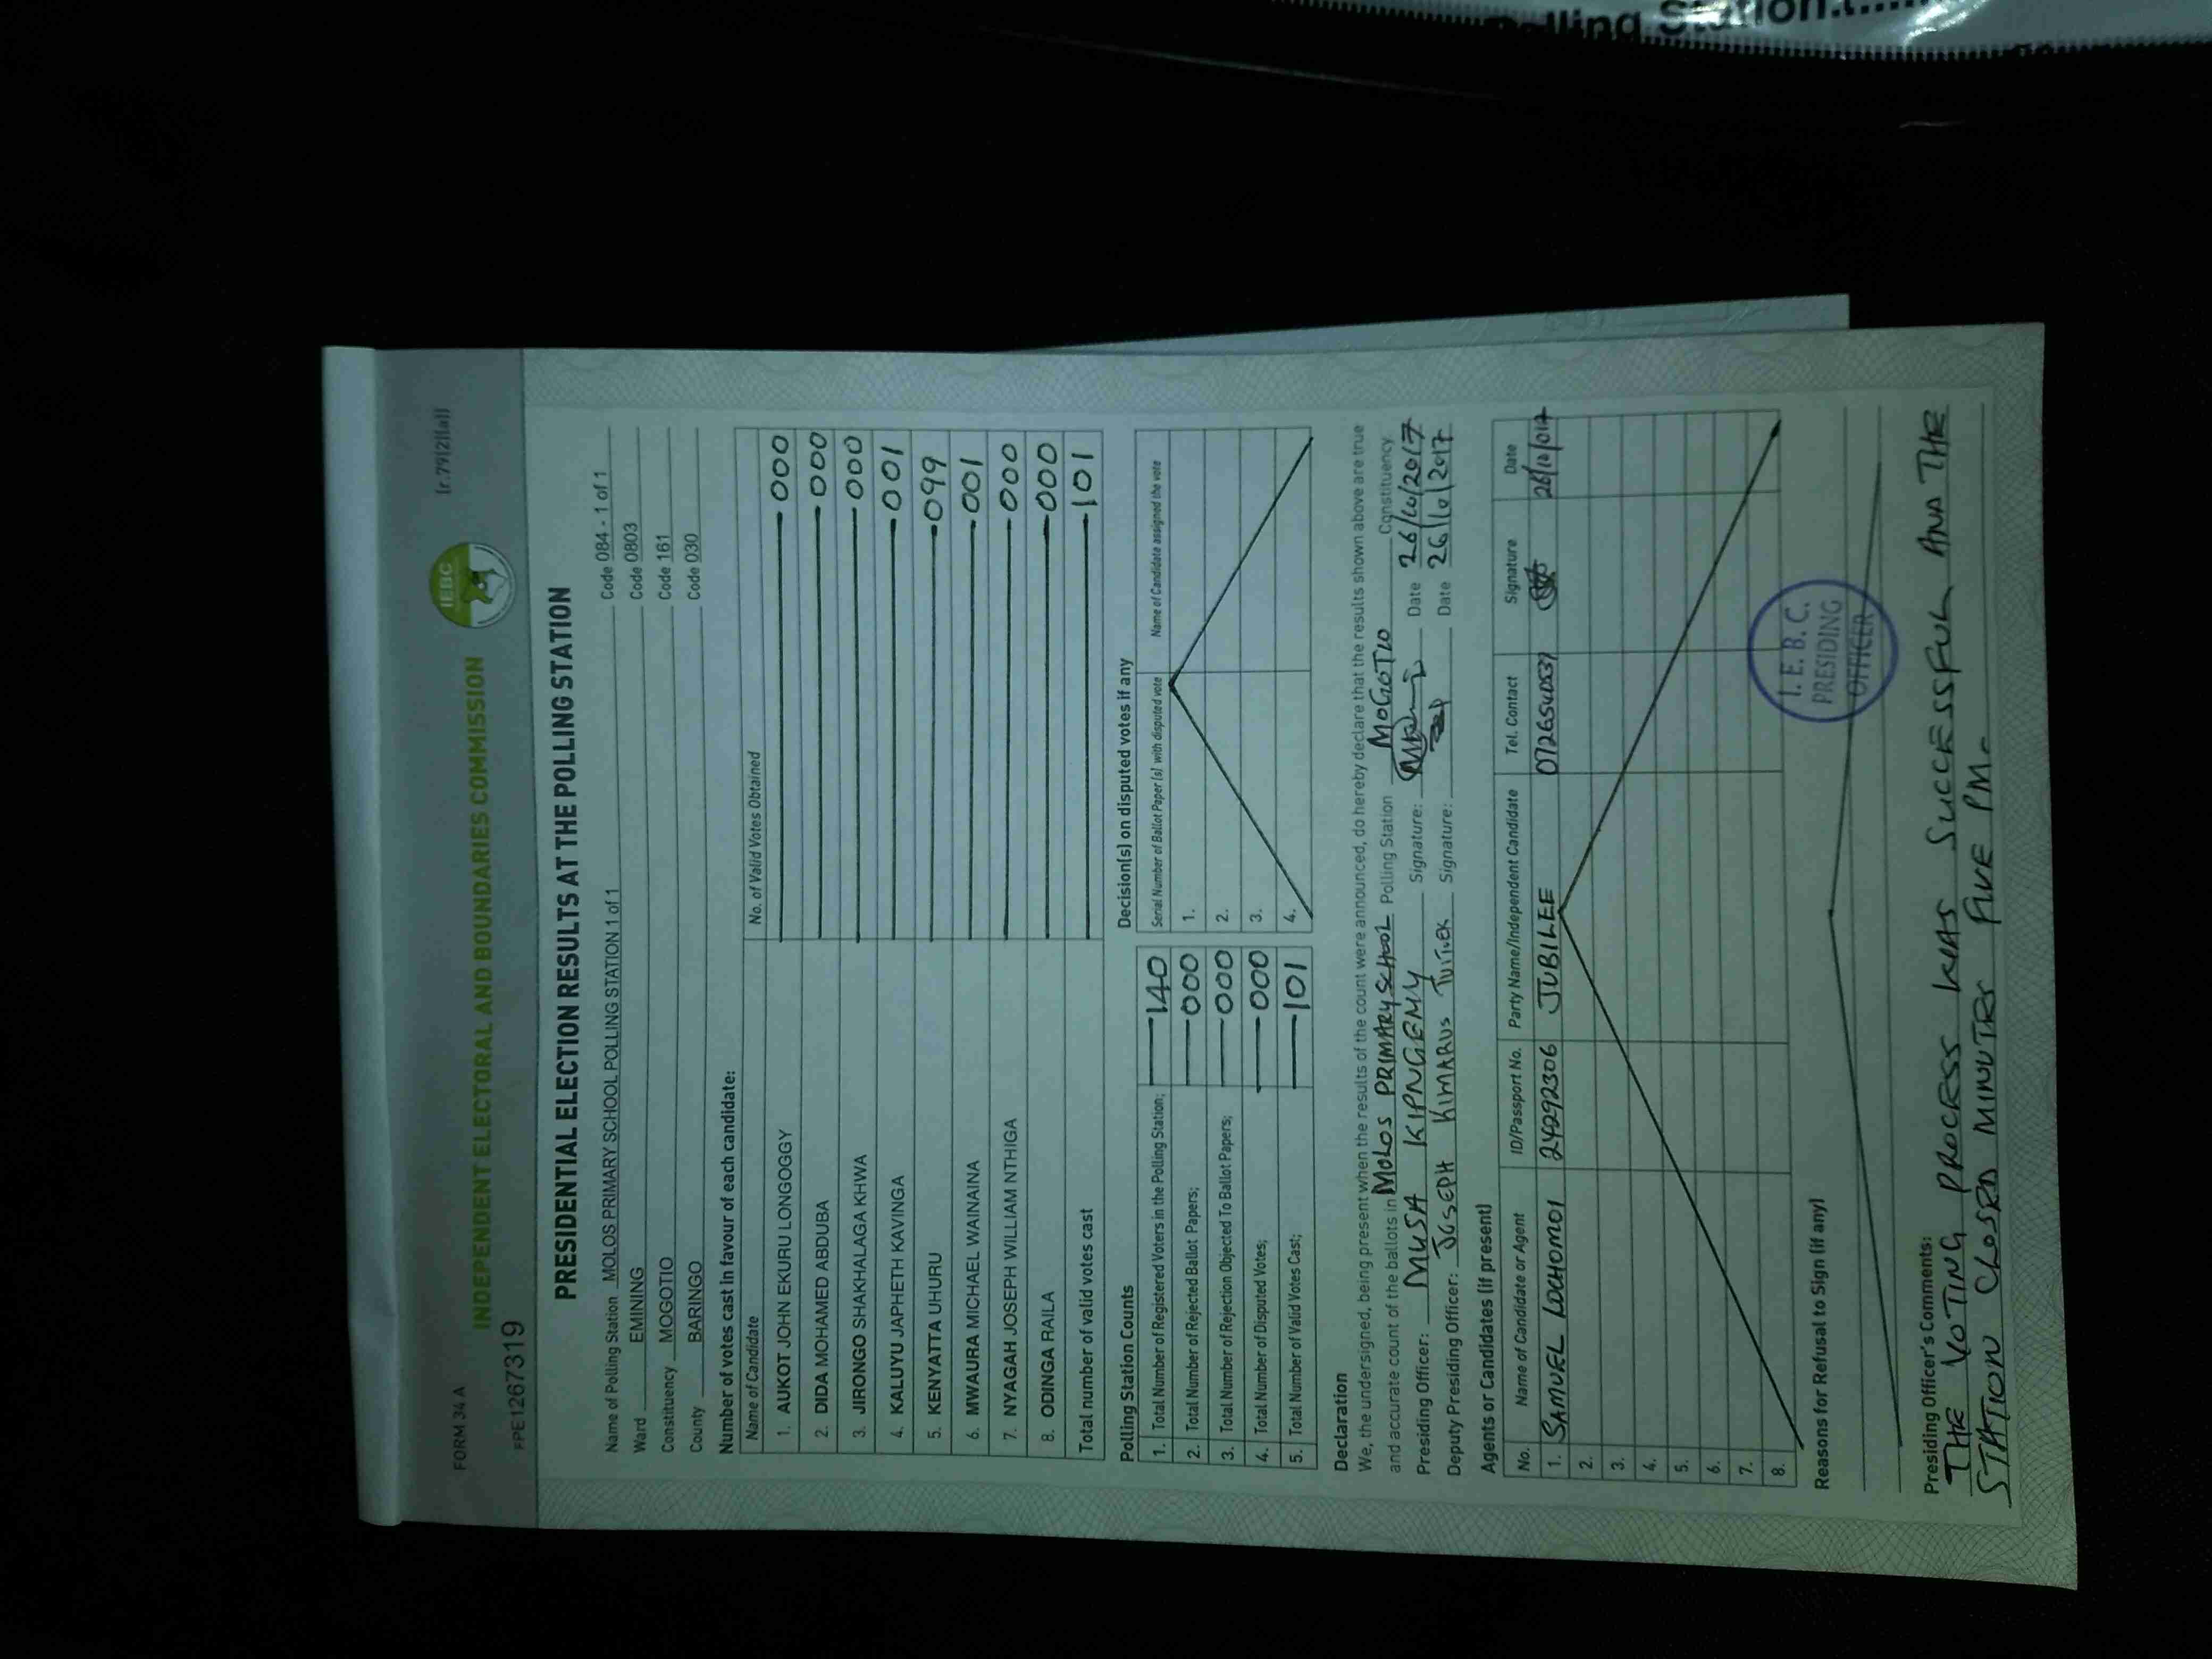 Polling Station
FORM 34 A
[r.79(2)(a)]
INDEPENDENT ELECTORAL AND BOUNDARIES COMMISSION
IEBC
FPE1267319
PRESIDENTIAL ELECTION RESULTS AT THE POLLING STATION
Name of Polling Station MOLOS PRIMARY SCHOOL POLLING STATION 1 of 1 Code 084 - 1 of 1
Ward EMINING Code 0803
Constituency MOGOTIO Code 161
County BARINGO Code 030
Number of votes cast in favour of each candidate:
Name of Candidate No. of Valid Votes Obtained
1. AUKOT JOHN EKURU LONGOGGY 000
2. DIDA MOHAMED ABDUBA 000
3. JIRONGO SHAKHALAGA KHWA 000
4. KALUYU JAPHETH KAVINGA 001
5. KENYATTA UHURU 099
6. MWAURA MICHAEL WAINAINA 001
7. NYAGAH JOSEPH WILLIAM NTHIGA 000
8. ODINGA RAILA 000
Total number of valid votes cast 101
Polling Station Counts
1. Total Number of Registered Voters in the Polling Station; 140
2. Total Number of Rejected Ballot Papers; 000
3. Total Number of Rejection Objected To Ballot Papers; 000
4. Total Number of Disputed Votes; 000
5. Total Number of Valid Votes Cast; 101
Decision(s) on disputed votes if any
Serial Number of Ballot Paper (s) with disputed vote Name of Candidate assigned the vote
1.
2.
3.
4.
Declaration
We, the undersigned, being present when the results of the count were announced, do hereby declare that the results shown above are true
and accurate count of the ballots in MOLOS PRIMARY SCHOOL Polling Station MOGOTIO Constituency
Presiding Officer: MUSA KIPNGENY Signature: Date 26/10/2017
Deputy Presiding Officer: JOSEPH KIMARUS TUITEK Signature: Date 26/10/2017
Agents or Candidates (if present)
No. Name of Candidate or Agent ID/Passport No. Party Name/Independent Candidate Tel. Contact Signature Date
1. SAMUEL LOCHOMOI 24292306 JUBILEE 26/10/017
2.
3.
4.
5.
6.
7.
8.
Reasons for Refusal to Sign (if any)
I. E. B. C.
PRESIDING
OFFICER
Presiding Officer's Comments:
THE VOTING PROCESS WAS SUCCESSFUL AND THE
STATION CLOSED MINUTES FIVE PM.